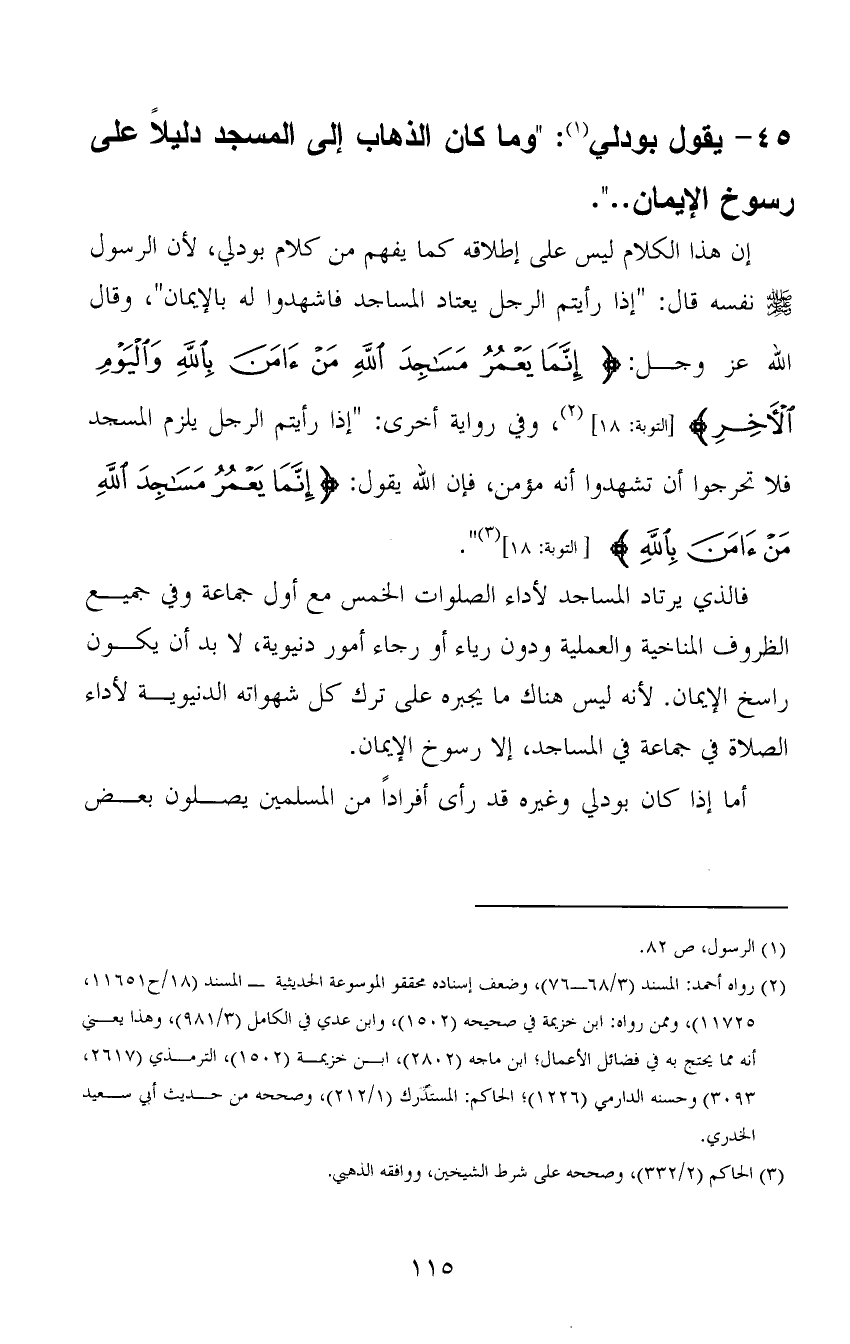 ٤٥- يقول بودلي(١): "وما كان الذهاب إلى المسجد دليلاً على
رسوخ الإيمان..".
إن هذا الكلام ليس على إطلاقه كما يفهم من كلام بودلي، لأن الرسول
ﷺ نفسه قال: "إذا رأيتم الرجل يعتاد المساجد فاشهدوا له بالإيمان"، وقال
الله عز وجــل: ﴿ إِنَّمَا يَعْمُرُ مَسَـٰجِدَ ٱللَّهِ مَنْ ءَامَنَ بِٱللَّهِ وَٱلْيَوْمِ
ٱلْأَخِرِ ﴾ [التوبة: ١٨] (٢)، وفي رواية أخرى: "إذا رأيتم الرجل يلزم المسجد
فلا تحرجوا أن تشهدوا أنه مؤمن، فإن الله يقول: ﴿ إِنَّمَا يَعْمُرُ مَسَـٰجِدَ ٱللَّهِ
مَنْ ءَامَنَ بِٱللَّهِ ﴾ [ التوبة: ١٨](٣)".
فالذي يرتاد المساجد لأداء الصلوات الخمس مع أول جماعة وفي جميـع
الظروف المناخية والعملية ودون رياء أو رجاء أمور دنيوية، لا بد أن يكـون
راسخ الإيمان. لأنه ليس هناك ما يجبره على ترك كل شهواته الدنيويـة لأداء
الصلاة في جماعة في المساجد، إلا رسوخ الإيمان.
أما إذا كان بودلي وغيره قد رأى أفراداً من المسلمين يصـلون بعـض
(١) الرسول، ص ٨٢.
(٢) رواه أحمد: المسند (٦٨/٣ــ٧٦)، وضعف إسناده محققو الموسوعة الحديثية ــ المسند (١٨/ح١١٦٥١،
١١٧٢٥)، وممن رواه: ابن خزيمة في صحيحه (١٥٠٢)، وابن عدي في الكامل (٩٨١/٣)، وهذا يعـني
أنه مما يحتج به في فضائل الأعمال؛ ابن ماجه (٢٨٠٢)، ابـن خزيمـة (١٥٠٢)، الترمـذي (٢٦١٧،
٣٠٩٣) وحسنه الدارمي (١٢٢٦)؛ الحاكم: المستدرك (٢١٢/١)، وصححه من حـديث أبي سـعيد
الخدري.
(٣) الحاكم (٣٣٢/٢)، وصححه على شرط الشيخين، ووافقه الذهبي.
١١٥